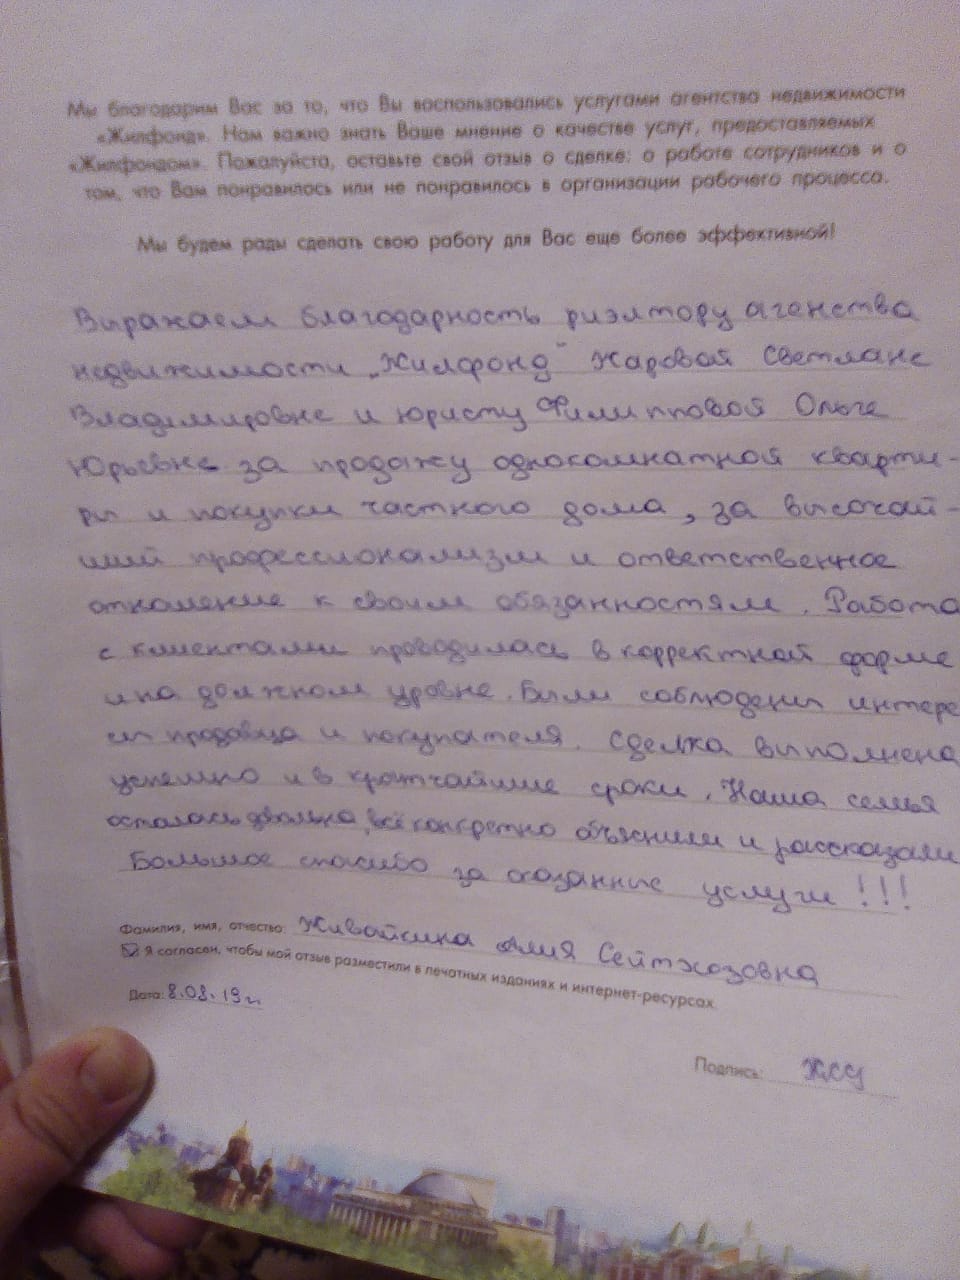 Мы благодарим Вас за то, что Вы воспользовались услугами агентства недвижимости
«Жилфонд». Нам важно знать Ваше мнение о качестве услуг, предоставляемых
«Жилфондом». Пожалуйста, оставьте свой отзыв о сделке: о работе сотрудников и о
том, что Вам понравилось или не понравилось в организации рабочего процесса.
Мы будем рады сделать свою работу для Вас еще более эффективной!
Выражаем благодарность риэлтору агенства
недвижимости „Жилфонд" Жаровой Светлане
Владимировне и юристу Филипповой Ольге
Юрьевне за продажу однокомнатной кварти-
ры и покупки частного дома, за высочай-
ший профессионализм и ответственное
отношение к своим обязанностям. Работа
с клиентами проводилась в корректной форме
и на должном уровне. Были соблюдены интере
сы продавца и покупателя. Сделка выполнена
успешно и в кратчайшие сроки. Наша семья
осталась довольна, всё конкретно объяснили и рассказали
Большое спасибо за оказанные услуги!!!
Фамилия, имя, отчество: Живайкина Алия Сейтхозовна
Я согласен, чтобы мой отзыв разместили в печатных изданиях и интернет-ресурсах.
Дата: 8.08.19г.
Подпись: